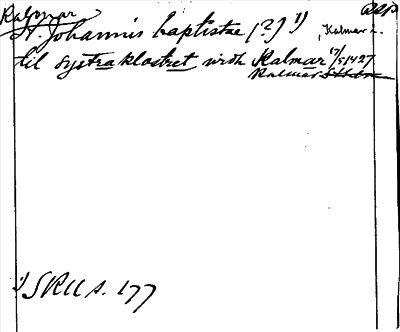 Kalmar
St. Johannis baptistae (?) 1) , Kalmar l.
til systraklostret widh Kalmar 17/5 1427
Kalmar
1) SRU s. 177